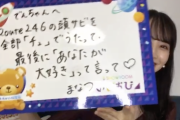 でんちゃんへ
Route246の頭サビを
全部「チュ」でうたって、
最後に「あなたが
大好きよって言って♡
まなつ